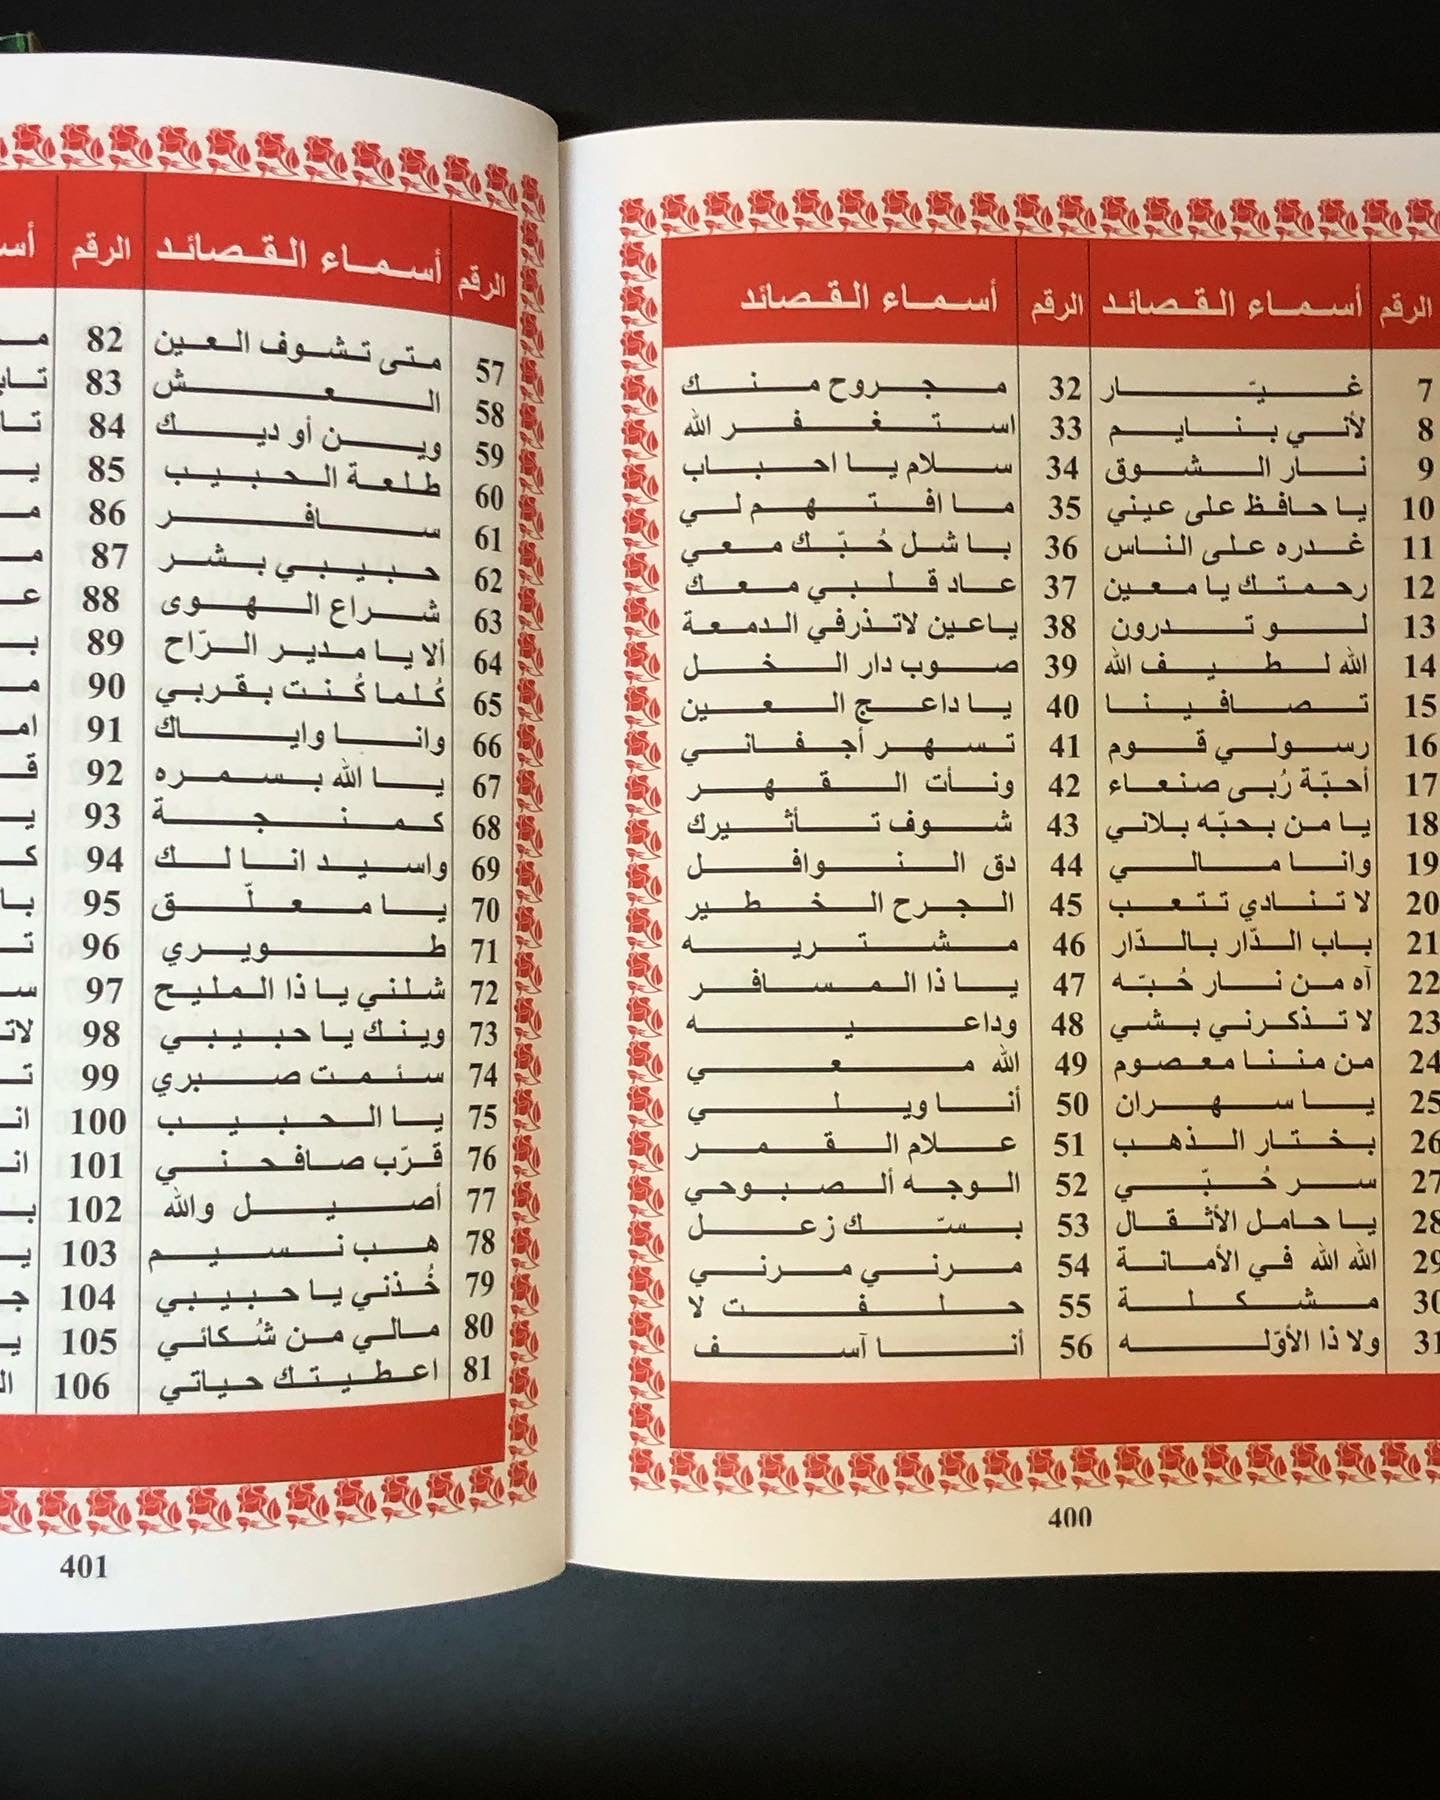 الرقم أسماء القصائد
7 غيّار
8 لأني بنايم
9 نار الشوق
10 يا حافظ على عيني
11 غدره على الناس
12 رحمتك يا معين
13 لو تدرون
14 الله لطيف الله
15 تصافينا
16 رسولي قوم
17 أحبّة رُبى صنعاء
18 يا من بحبّه بلاني
19 وانا مالي
20 لا تنادي تتعب
21 باب الدّار بالدّار
22 آه من نار حُبّه
23 لا تذكرني بشي
24 من مننا معصوم
25 يا سهران
26 بختار الذهب
27 سر حُبّي
28 يا حامل الأثقال
29 الله الله في الأمانة
30 مشكلة
31 ولا ذا الأوّله
الرقم أسماء القصائد
32 مجروح منك
33 استغفر الله
34 سلام يا احباب
35 ما افتهم لي
36 با شل حُبّك معي
37 عاد قلبي معك
38 ياعين لاتذرفي الدمعة
39 صوب دار الخل
40 يا داعج العين
41 تسهر أجفاني
42 ونأت القهر
43 شوف تأثيرك
44 دق النوافل
45 الجرح الخطير
46 مشتريه
47 يا ذا المسافر
48 وداعيه
49 الله معي
50 أنا ويلي
51 علام القمر
52 الوجه ألصبوحي
53 بسّك زعل
54 مرني مرني
55 حلفت لا
56 أنا آسف
400
الرقم أسماء القصائد
57 متى تشوف العين
58 العش
59 وين أو ديك
60 طلعة الحبيب
61 سافر
62 حبيبي بشر
63 شراع الهوى
64 ألا يا مدير الرّاح
65 كُلما كُنت بقربي
66 وانا واياك
67 يا الله بسمره
68 كمنجة
69 واسيد انا لك
70 يا معلّق
71 طويري
72 شلني يا ذا المليح
73 وينك يا حبيبي
74 سئمت صبري
75 يا الحبيب
76 قرّب صافحني
77 أصيل والله
78 هب نسيم
79 خُذني يا حبيبي
80 مالي من شُكائي
81 اعطيتك حياتي
الرقم
82
83
84
85
86
87
88
89
90
91
92
93
94
95
96
97
98
99
100
101
102
103
104
105
106
401